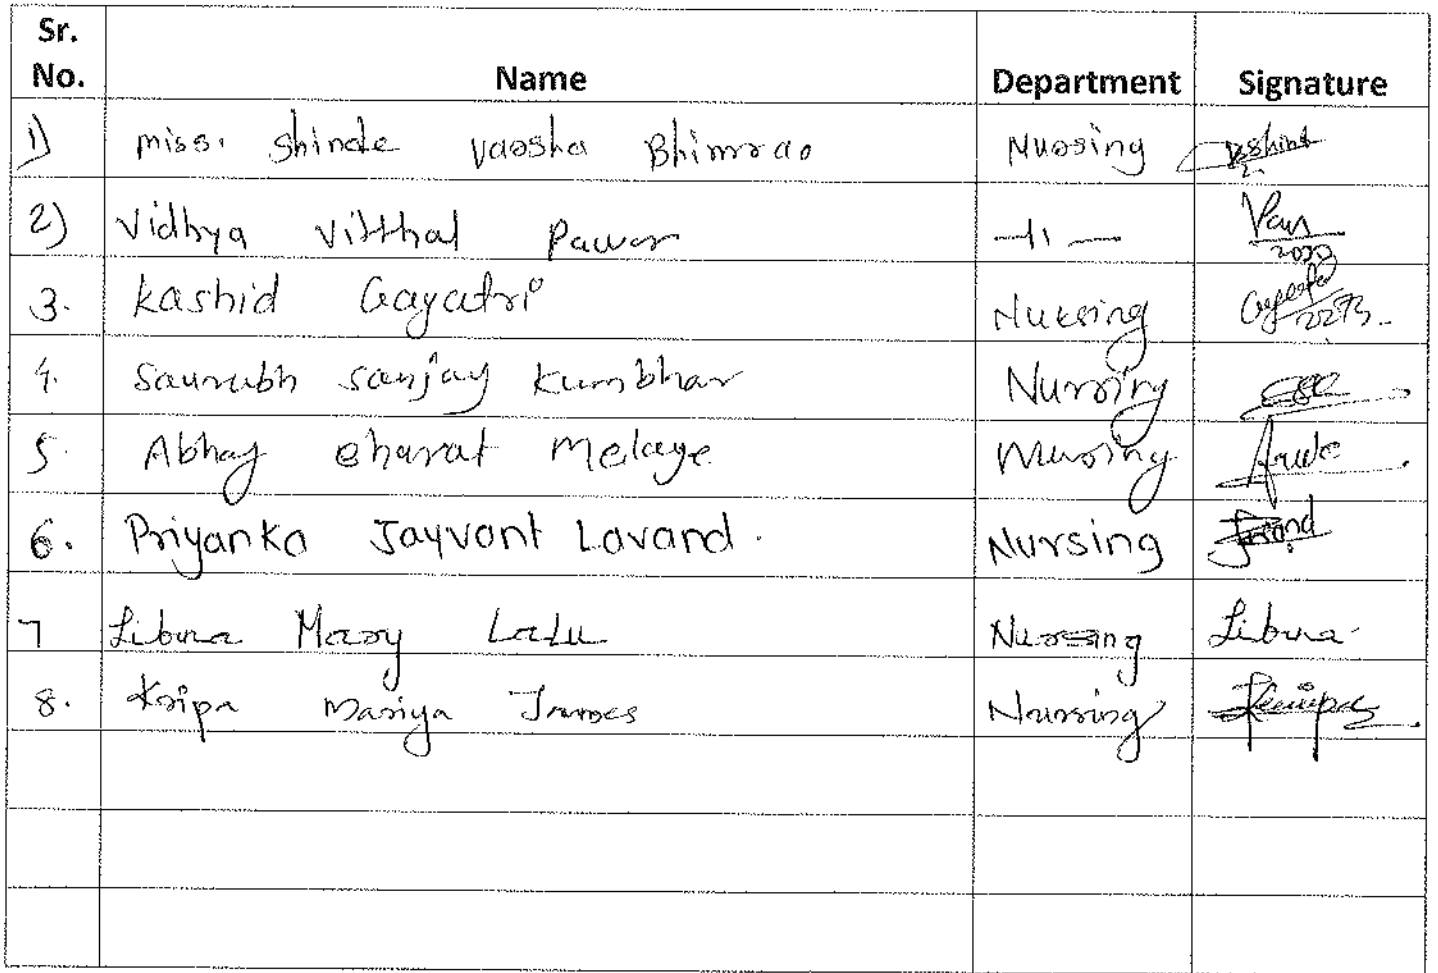 Sr.
No. Name Department Signature
1) Miss. Shinde Varsha Bhimrao Nursing
2) Vidhya Vitthal Pawar —11—
3. Kashid Gayatri Nursing
4. Saurabh Sanjay Kumbhar Nursing
5. Abhay Bharat Melage Nursing
6. Priyanka Jayvant Lavand. Nursing
7 Libina Mary Lalu Nursing Libina
8. Kripa Mariya James Nursing